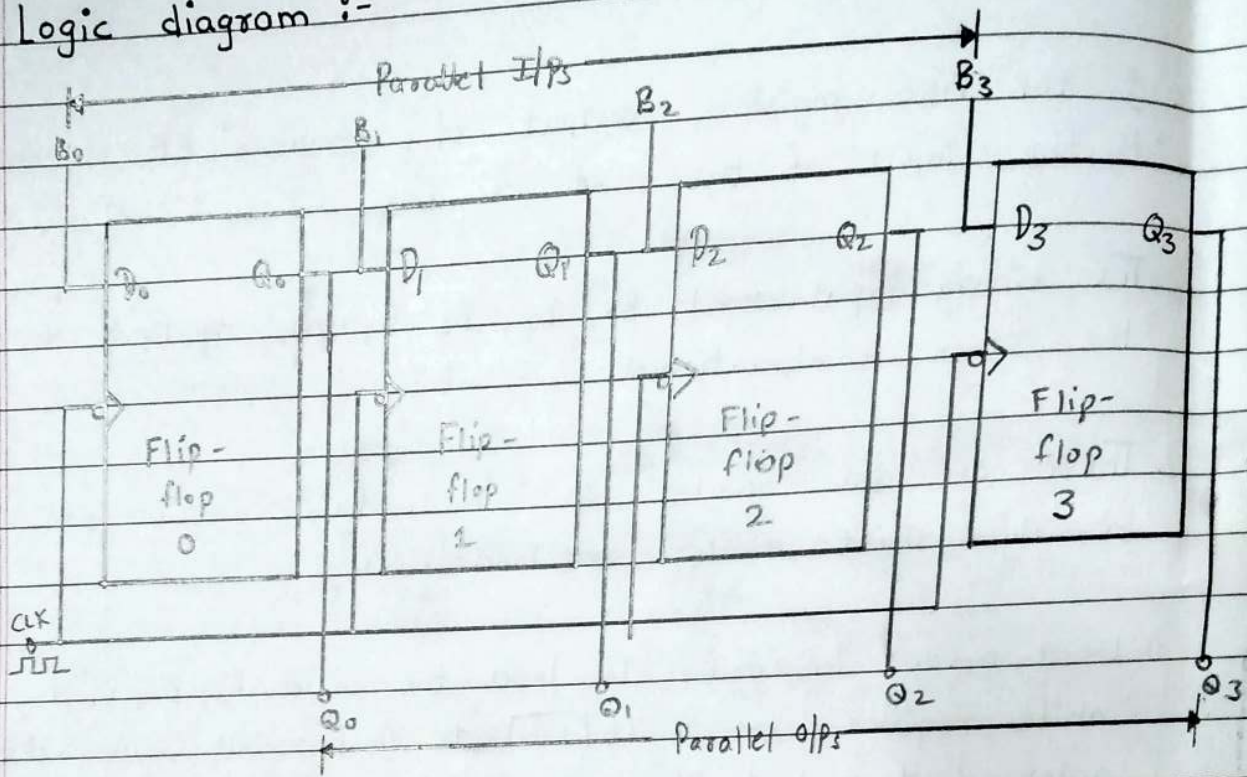 Logic diagram :-
Parallel I/Ps
B0 B1 B2 B3
D0 Q0 D1 Q1 D2 Q2 D3 Q3
Flip-
flop
0
Flip-
flop
1
Flip-
flop
2
Flip-
flop
3
CLK
Q0 Q1 Q2 Q3
Parallel O/Ps